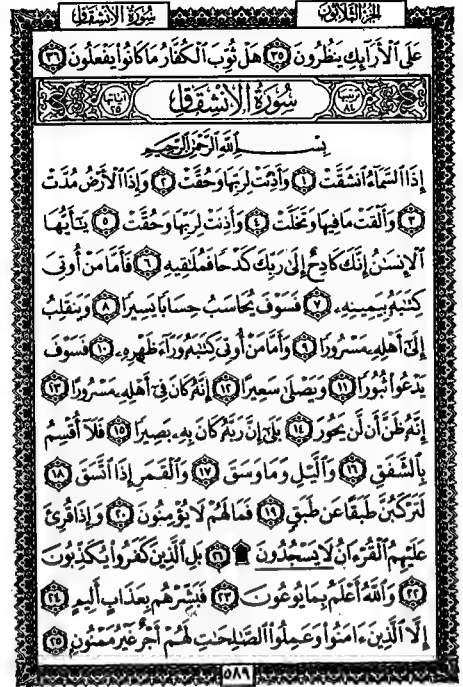 سُورَةُ الانْشِقَاقِ الجُزْءُ الثَّلاثُونَ
عَلَى ٱلْأَرَآئِكِ يَنظُرُونَ ٣٥ هَلْ ثُوِّبَ ٱلْكُفَّارُ مَا كَانُوا۟ يَفْعَلُونَ ٣٦
سُورَةُ الانْشِقَاقِ آياتها ٢٥ ترتيبها ٨٤
بِسْمِ ٱللَّهِ ٱلرَّحْمَٰنِ ٱلرَّحِيمِ
إِذَا ٱلسَّمَآءُ ٱنشَقَّتْ ١ وَأَذِنَتْ لِرَبِّهَا وَحُقَّتْ ٢ وَإِذَا ٱلْأَرْضُ مُدَّتْ
٣ وَأَلْقَتْ مَا فِيهَا وَتَخَلَّتْ ٤ وَأَذِنَتْ لِرَبِّهَا وَحُقَّتْ ٥ يَٰٓأَيُّهَا
ٱلْإِنسَٰنُ إِنَّكَ كَادِحٌ إِلَىٰ رَبِّكَ كَدْحًا فَمُلَٰقِيهِ ٦ فَأَمَّا مَنْ أُوتِىَ
كِتَٰبَهُۥ بِيَمِينِهِۦ ٧ فَسَوْفَ يُحَاسَبُ حِسَابًا يَسِيرًا ٨ وَيَنقَلِبُ
إِلَىٰٓ أَهْلِهِۦ مَسْرُورًا ٩ وَأَمَّا مَنْ أُوتِىَ كِتَٰبَهُۥ وَرَآءَ ظَهْرِهِۦ ١٠ فَسَوْفَ
يَدْعُوا۟ ثُبُورًا ١١ وَيَصْلَىٰ سَعِيرًا ١٢ إِنَّهُۥ كَانَ فِىٓ أَهْلِهِۦ مَسْرُورًا ١٣
إِنَّهُۥ ظَنَّ أَن لَّن يَحُورَ ١٤ بَلَىٰٓ إِنَّ رَبَّهُۥ كَانَ بِهِۦ بَصِيرًا ١٥ فَلَآ أُقْسِمُ
بِٱلشَّفَقِ ١٦ وَٱلَّيْلِ وَمَا وَسَقَ ١٧ وَٱلْقَمَرِ إِذَا ٱتَّسَقَ ١٨
لَتَرْكَبُنَّ طَبَقًا عَن طَبَقٍ ١٩ فَمَا لَهُمْ لَا يُؤْمِنُونَ ٢٠ وَإِذَا قُرِئَ
عَلَيْهِمُ ٱلْقُرْءَانُ لَا يَسْجُدُونَ ۩ ٢١ بَلِ ٱلَّذِينَ كَفَرُوا۟ يُكَذِّبُونَ
٢٢ وَٱللَّهُ أَعْلَمُ بِمَا يُوعُونَ ٢٣ فَبَشِّرْهُم بِعَذَابٍ أَلِيمٍ ٢٤
إِلَّا ٱلَّذِينَ ءَامَنُوا۟ وَعَمِلُوا۟ ٱلصَّٰلِحَٰتِ لَهُمْ أَجْرٌ غَيْرُ مَمْنُونٍۭ ٢٥
٥٨٩